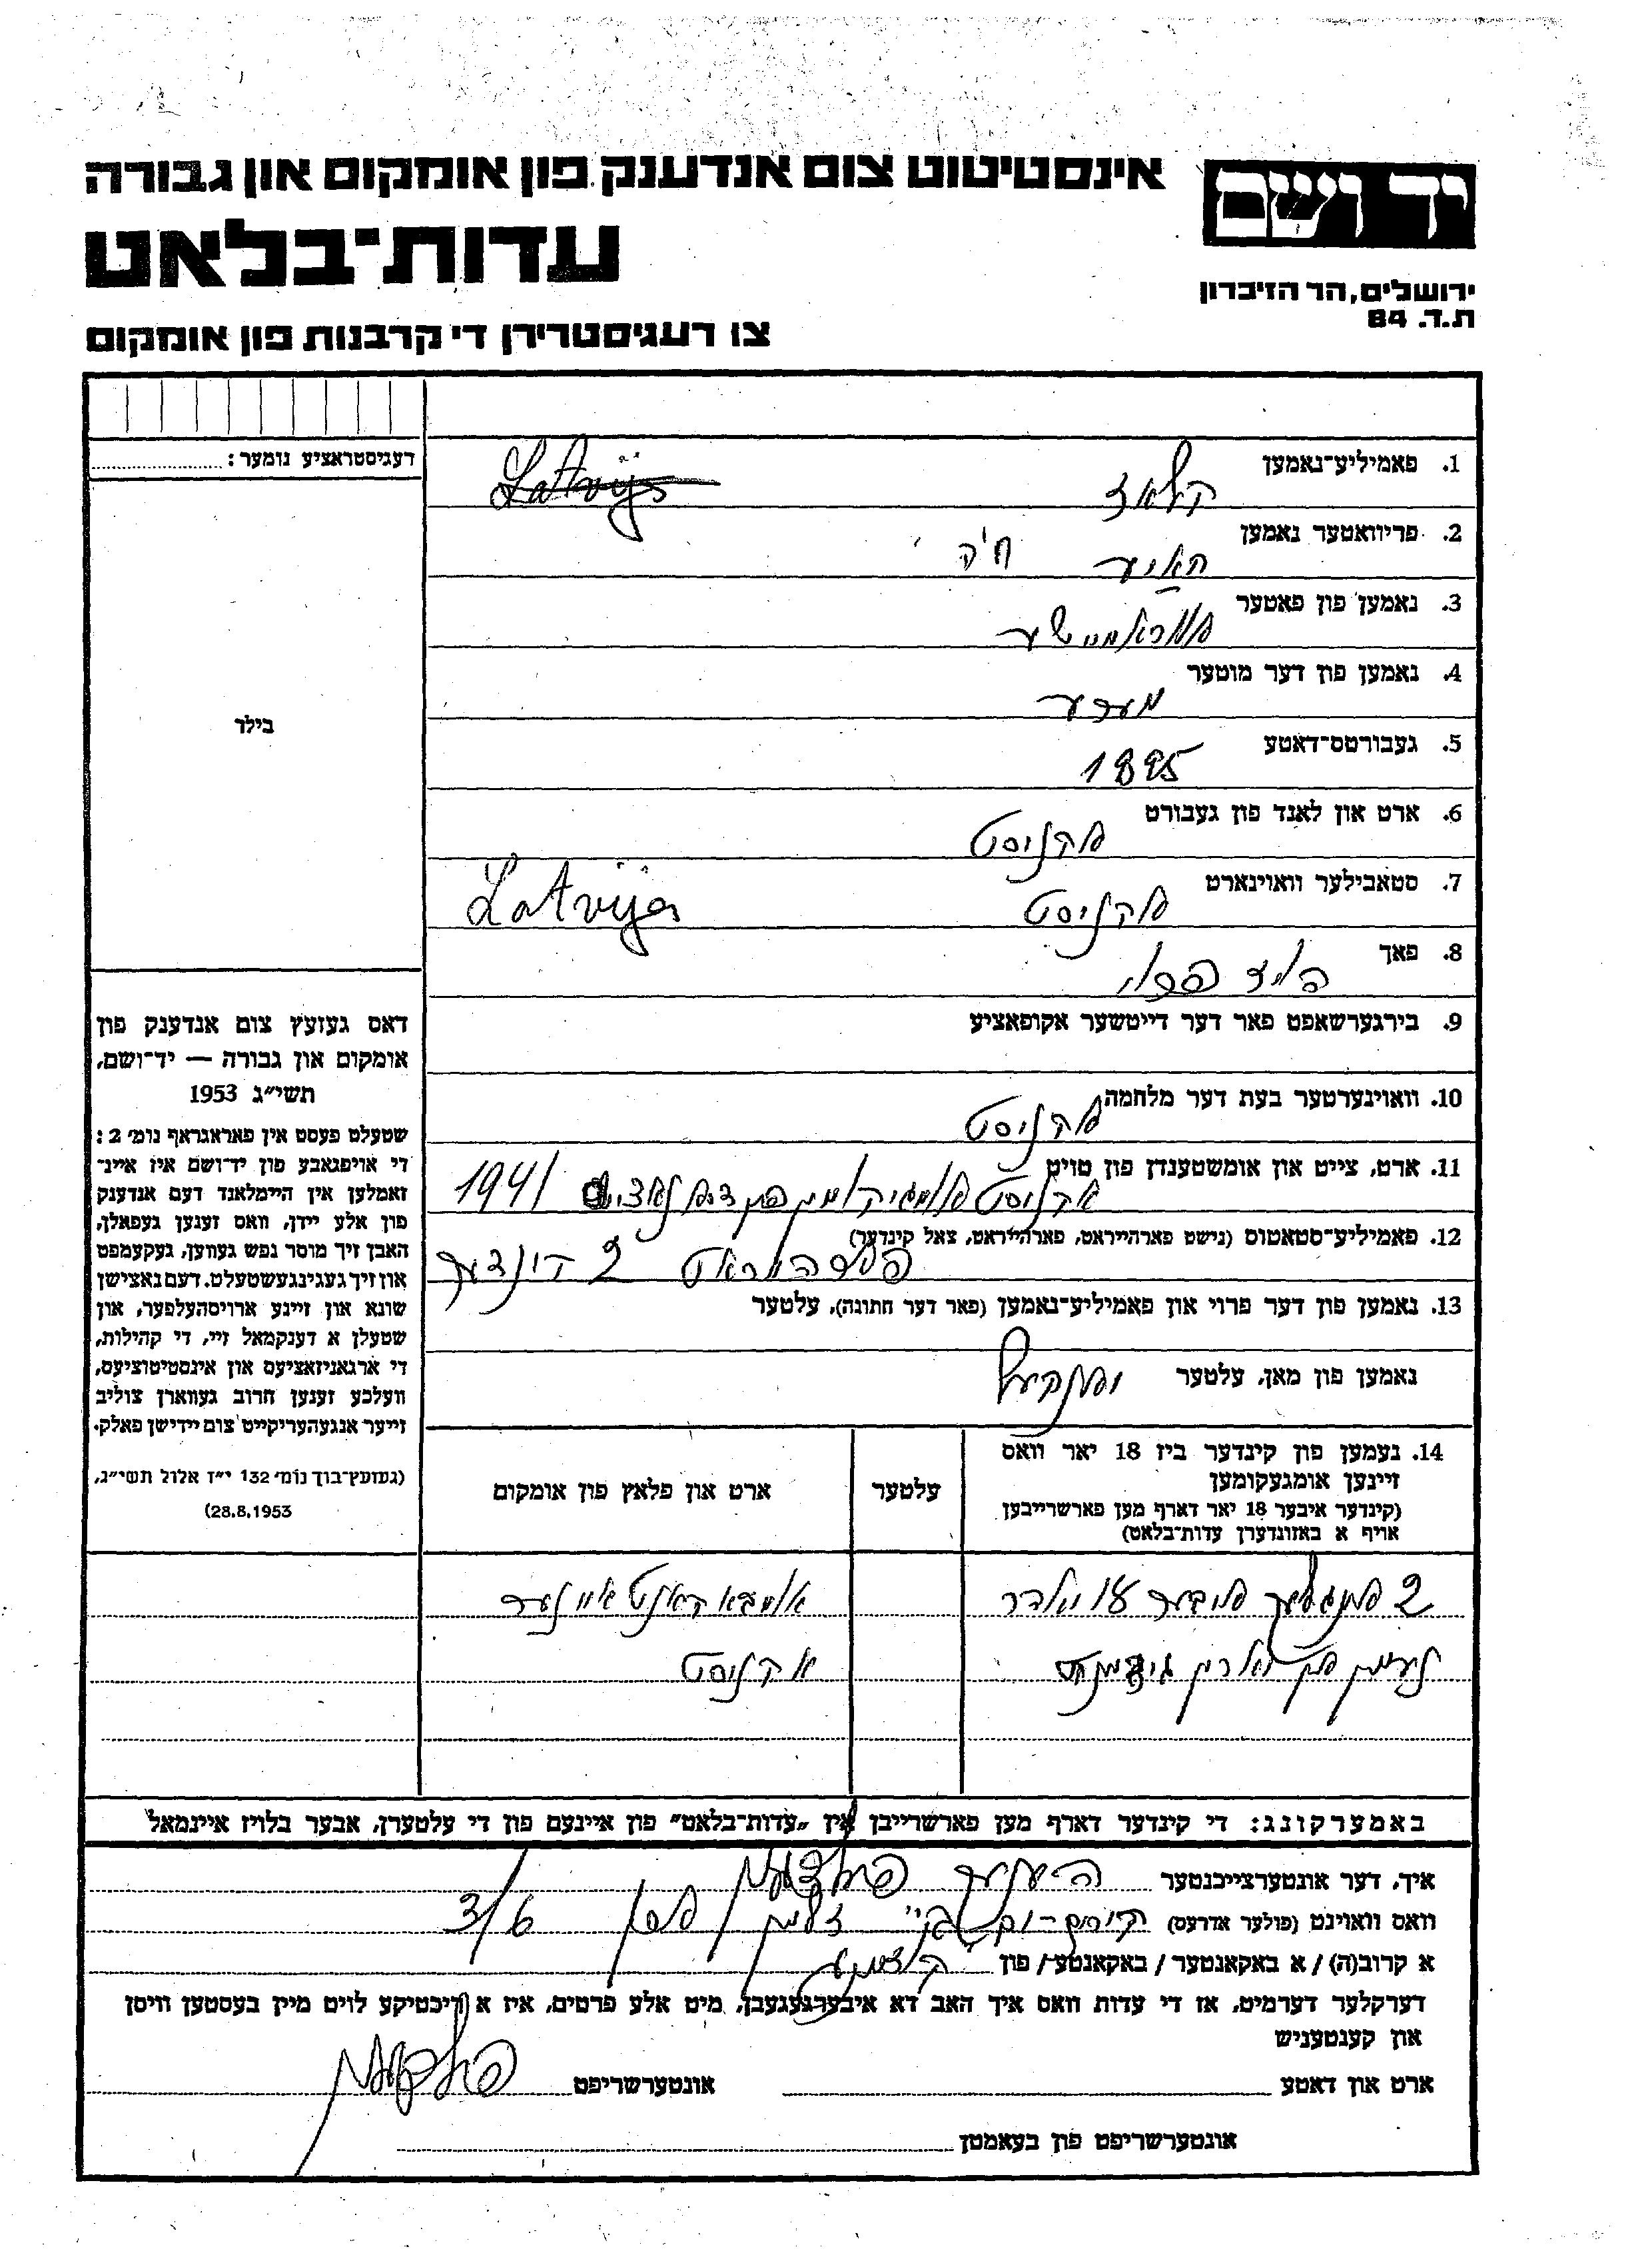 אינסטיטוט צום אנדענק פון אומקום און גבורה
יד ושם
עדות־בלאט
ירושלים, הר הזיכרון
ת.ד. 84
צו רעגיסטרירן די קרבנות פון אומקום
רעגיסטראציע נומער:
1. פאמיליע־נאמען
Latvija
2. פריוואטער נאמען
חיה
3. נאמען פון פאטער
4. נאמען פון דער מוטער
5. געבורטס־דאטע
1895
6. ארט און לאנד פון געבורט
אקניסט
7. סטאבילער וואוינארט
אקניסט Latvija
8. פאך
9. בירגערשאפט פאר דער דייטשער אקופאציע
10. וואוינערטער בעת דער מלחמה
אקניסט
11. ארט, צייט און אומשטענדן פון טויט
אקניסט 1941
12. פאמיליע־סטאטוס (נישט פארהייראט, פארהייראט, צאל קינדער)
פארהייראט 2 קינדער
13. נאמען פון דער פרוי און פאמיליע־נאמען (פאר דער חתונה), עלטער
נאמען פון מאן, עלטער
בילד
דאס געזעץ צום אנדענק פון
אומקום און גבורה — יד־ושם,
תשי״ג 1953
שטעלט פעסט אין פאראגראף נומ׳ 2:
די אויפגאבע פון יד־ושם איז איינ־
זאמלען אין היימלאנד דעם אנדענק
פון אלע יידן, וואס זענען געפאלן,
האבן זיך מוסר נפש געווען, געקעמפט
און זיך געגינגעשטעלט. דעם נאצישן
שונא און זיינע ארויסהעלפער, און
שטעלן א דענקמאל זיי, די קהילות,
די ארגאניזאציעס און אינסטיטוציעס,
וועלכע זענען חרוב געווארן צוליב
זייער אנגעהעריקייט צום יידישן פאלק.
(געזעץ־בוך נומ׳ 132 י״ז אלול תשי״ג,
28.8.1953)
14. נעמען פון קינדער ביז 18 יאר וואס
זיינען אומגעקומען
(קינדער איבער 18 יאר דארף מען פארשרייבן
אויף א באזונדערן עדות־בלאט)
עלטער
ארט און פלאץ פון אומקום
2
אקניסט
באמערקונג: די קינדער דארף מען פארשרייבן אין „עדות־בלאט״ פון איינעם פון די עלטערן, אבער בלויז איינמאל
איך, דער אונטערצייכנטער
וואס וואוינט (פולער אדרעס) 3/6
א קרוב(ה) / א באקאנטער / באקאנטע / פון
דערקלער דערמיט, אז די עדות וואס איך האב דא איבערגעגעבן, מיט אלע פרטים, איז א ריכטיקע לויט מיין בעסטען וויסן
און קענטעניש
ארט און דאטע אונטערשריפט
אונטערשריפט פון בעאמטן